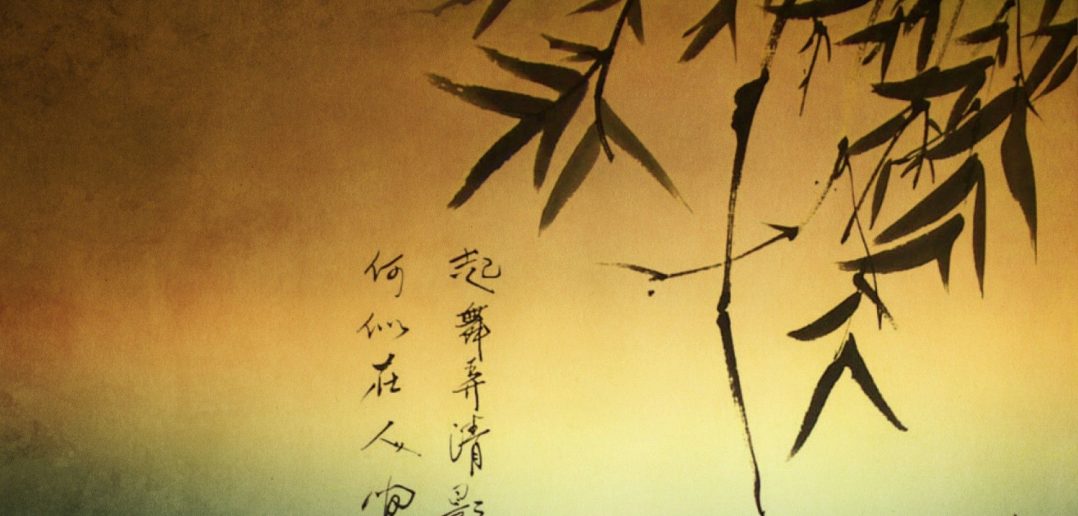 起舞弄清影
何似在人间